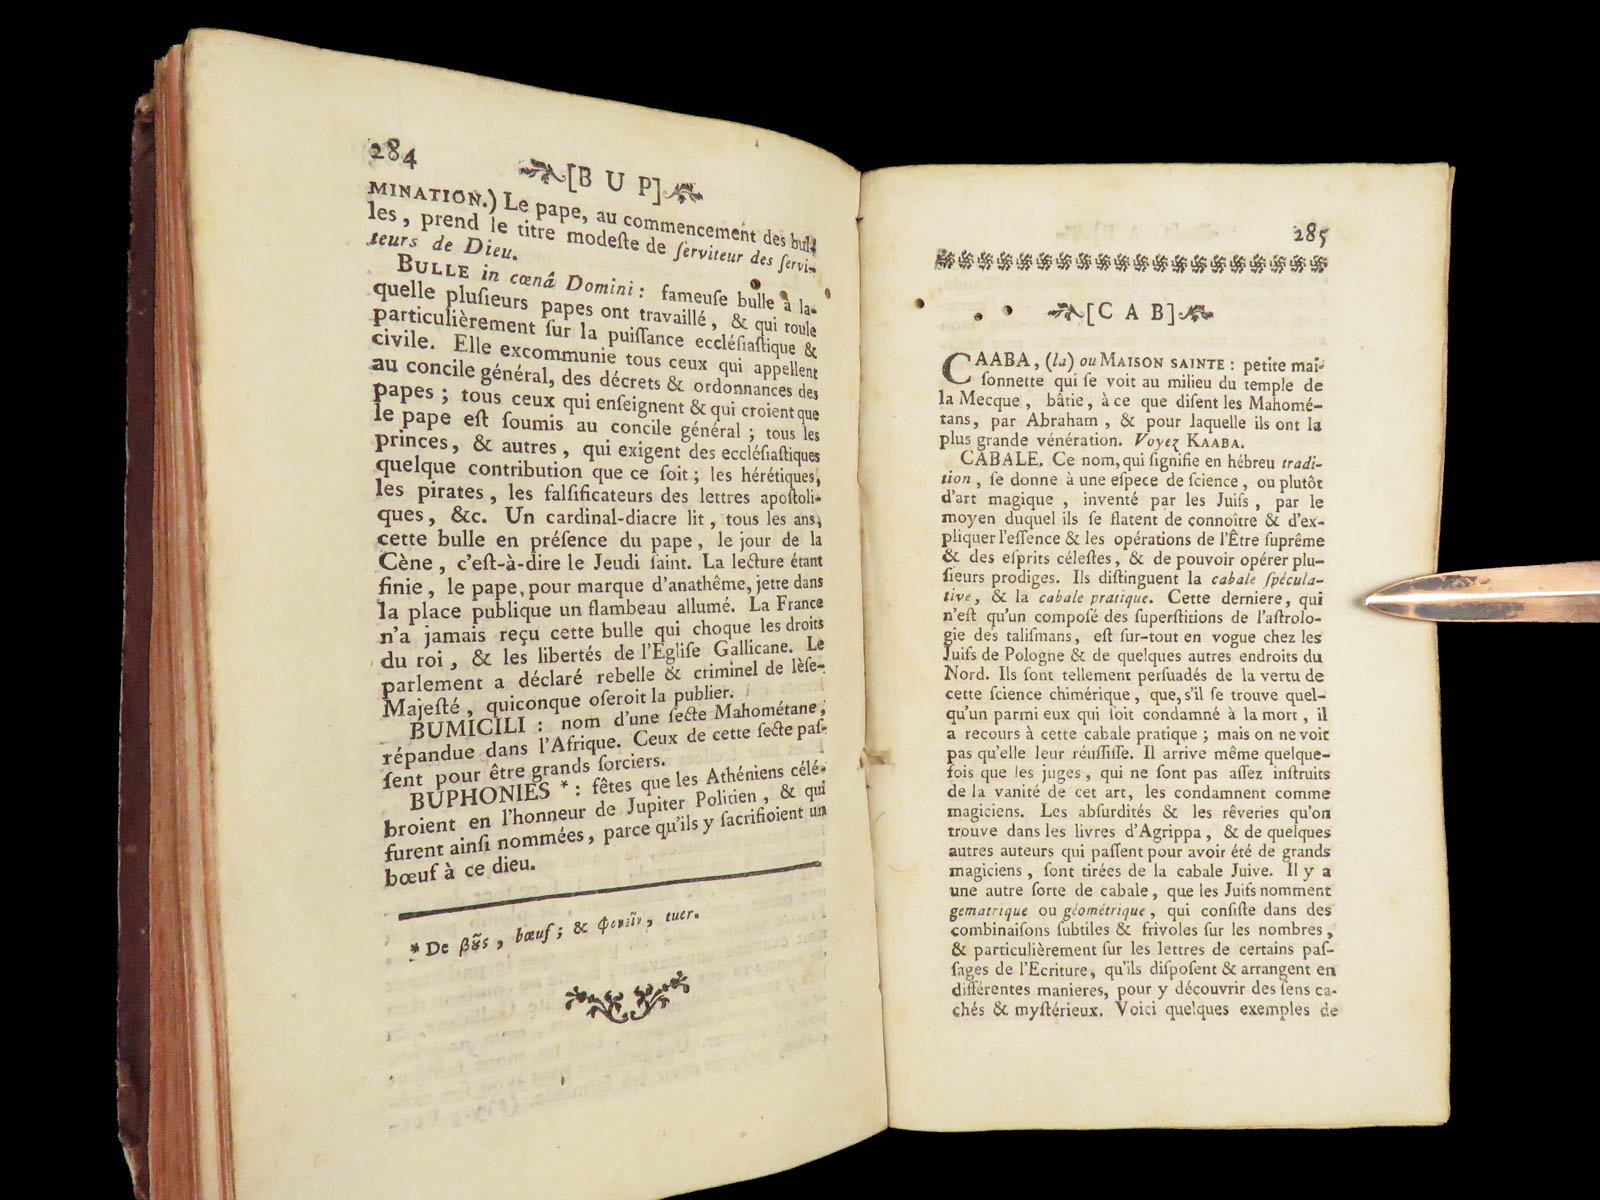 284
[B U P]
MINATION.) Le pape, au commencement des bul-
les, prend le titre modeſte de ſerviteur des ſervi-
teurs de Dieu.
BULLE in cœnâ Domini : fameuſe bulle à la-
quelle pluſieurs papes ont travaillé, & qui roule
particulièrement ſur la puiſſance eccléſiaſtique &
civile. Elle excommunie tous ceux qui appellent
au concile général, des décrets & ordonnances des
papes ; tous ceux qui enſeignent & qui croient que
le pape eſt ſoumis au concile général ; tous les
princes, & autres, qui exigent des eccléſiaſtiques
quelque contribution que ce ſoit ; les hérétiques,
les pirates, les falſificateurs des lettres apoſtoli-
ques, &c. Un cardinal-diacre lit, tous les ans,
cette bulle en préſence du pape, le jour de la
Cène, c'eſt-à-dire le Jeudi ſaint. La lecture étant
finie, le pape, pour marque d'anathême, jette dans
la place publique un flambeau allumé. La France
n'a jamais reçu cette bulle qui choque les droits
du roi, & les libertés de l'Egliſe Gallicane. Le
parlement a déclaré rebelle & criminel de lèſe-
Majeſté, quiconque oſeroit la publier.
BUMICILI : nom d'une ſecte Mahométane,
répandue dans l'Afrique. Ceux de cette ſecte paſ-
ſent pour être grands ſorciers.
BUPHONIES * : fêtes que les Athéniens célé-
broient en l'honneur de Jupiter Politien, & qui
furent ainſi nommées, parce qu'ils y ſacrifioient un
bœuf à ce dieu.
* De βοῦς, bœuf ; & φονεῖν, tuer.
285
[C A B]
CAABA, (la) ou MAISON SAINTE : petite mai-
ſonnette qui ſe voit au milieu du temple de
la Mecque, bâtie, à ce que diſent les Mahomé-
tans, par Abraham, & pour laquelle ils ont la
plus grande vénération. Voyez KAABA.
CABALE. Ce nom, qui ſignifie en hébreu tradi-
tion, ſe donne à une eſpece de ſcience, ou plutôt
d'art magique, inventé par les Juifs, par le
moyen duquel ils ſe flatent de connoître & d'ex-
pliquer l'eſſence & les opérations de l'Être ſuprême
& des eſprits céleſtes, & de pouvoir opérer plu-
ſieurs prodiges. Ils diſtinguent la cabale ſpécula-
tive, & la cabale pratique. Cette derniere, qui
n'eſt qu'un compoſé des ſuperſtitions de l'aſtrolo-
gie des taliſmans, eſt ſur-tout en vogue chez les
Juifs de Pologne & de quelques autres endroits du
Nord. Ils ſont tellement perſuadés de la vertu de
cette ſcience chimérique, que, s'il ſe trouve quel-
qu'un parmi eux qui ſoit condamné à la mort, il
a recours à cette cabale pratique ; mais on ne voit
pas qu'elle leur réuſſiſſe. Il arrive même quelque-
fois que les juges, qui ne ſont pas aſſez inſtruits
de la vanité de cet art, les condamnent comme
magiciens. Les abſurdités & les rêveries qu'on
trouve dans les livres d'Agrippa, & de quelques
autres auteurs qui paſſent pour avoir été de grands
magiciens, ſont tirées de la cabale Juive. Il y a
une autre ſorte de cabale, que les Juifs nomment
gematrique ou géométrique, qui conſiſte dans des
combinaiſons ſubtiles & frivoles ſur les nombres,
& particulièrement ſur les lettres de certains paſ-
ſages de l'Ecriture, qu'ils diſpoſent & arrangent en
différentes manieres, pour y découvrir des ſens ca-
chés & myſtérieux. Voici quelques exemples de